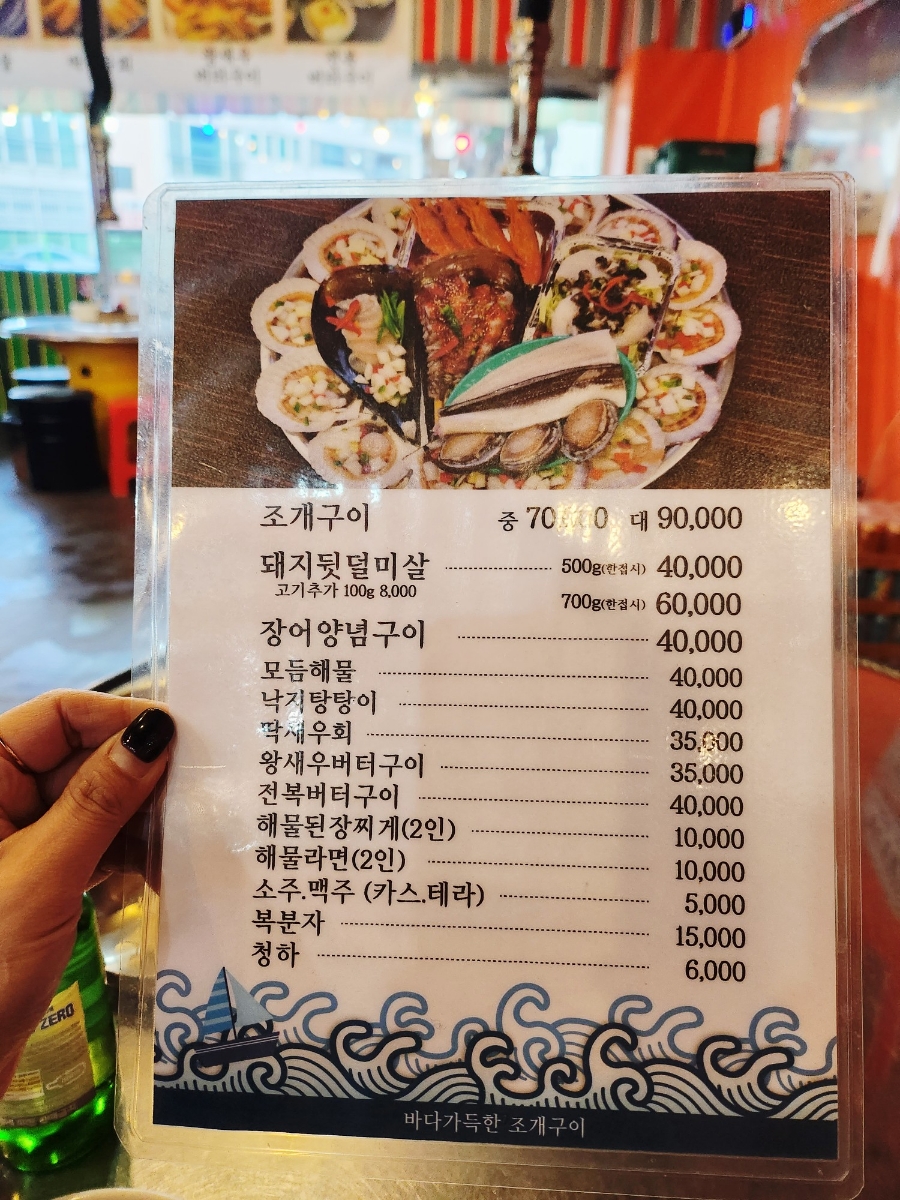 조개구이 중 70,000 대 90,000
돼지뒷덜미살 500g(한접시) 40,000
고기추가 100g 8,000
700g(한접시) 60,000
장어양념구이 40,000
모듬해물 40,000
낙지탕탕이 40,000
딱새우회 35,000
왕새우버터구이 35,000
전복버터구이 40,000
해물된장찌게(2인) 10,000
해물라면(2인) 10,000
소주.맥주 (카스.테라) 5,000
복분자 15,000
청하 6,000
바다가득한 조개구이
ZERO